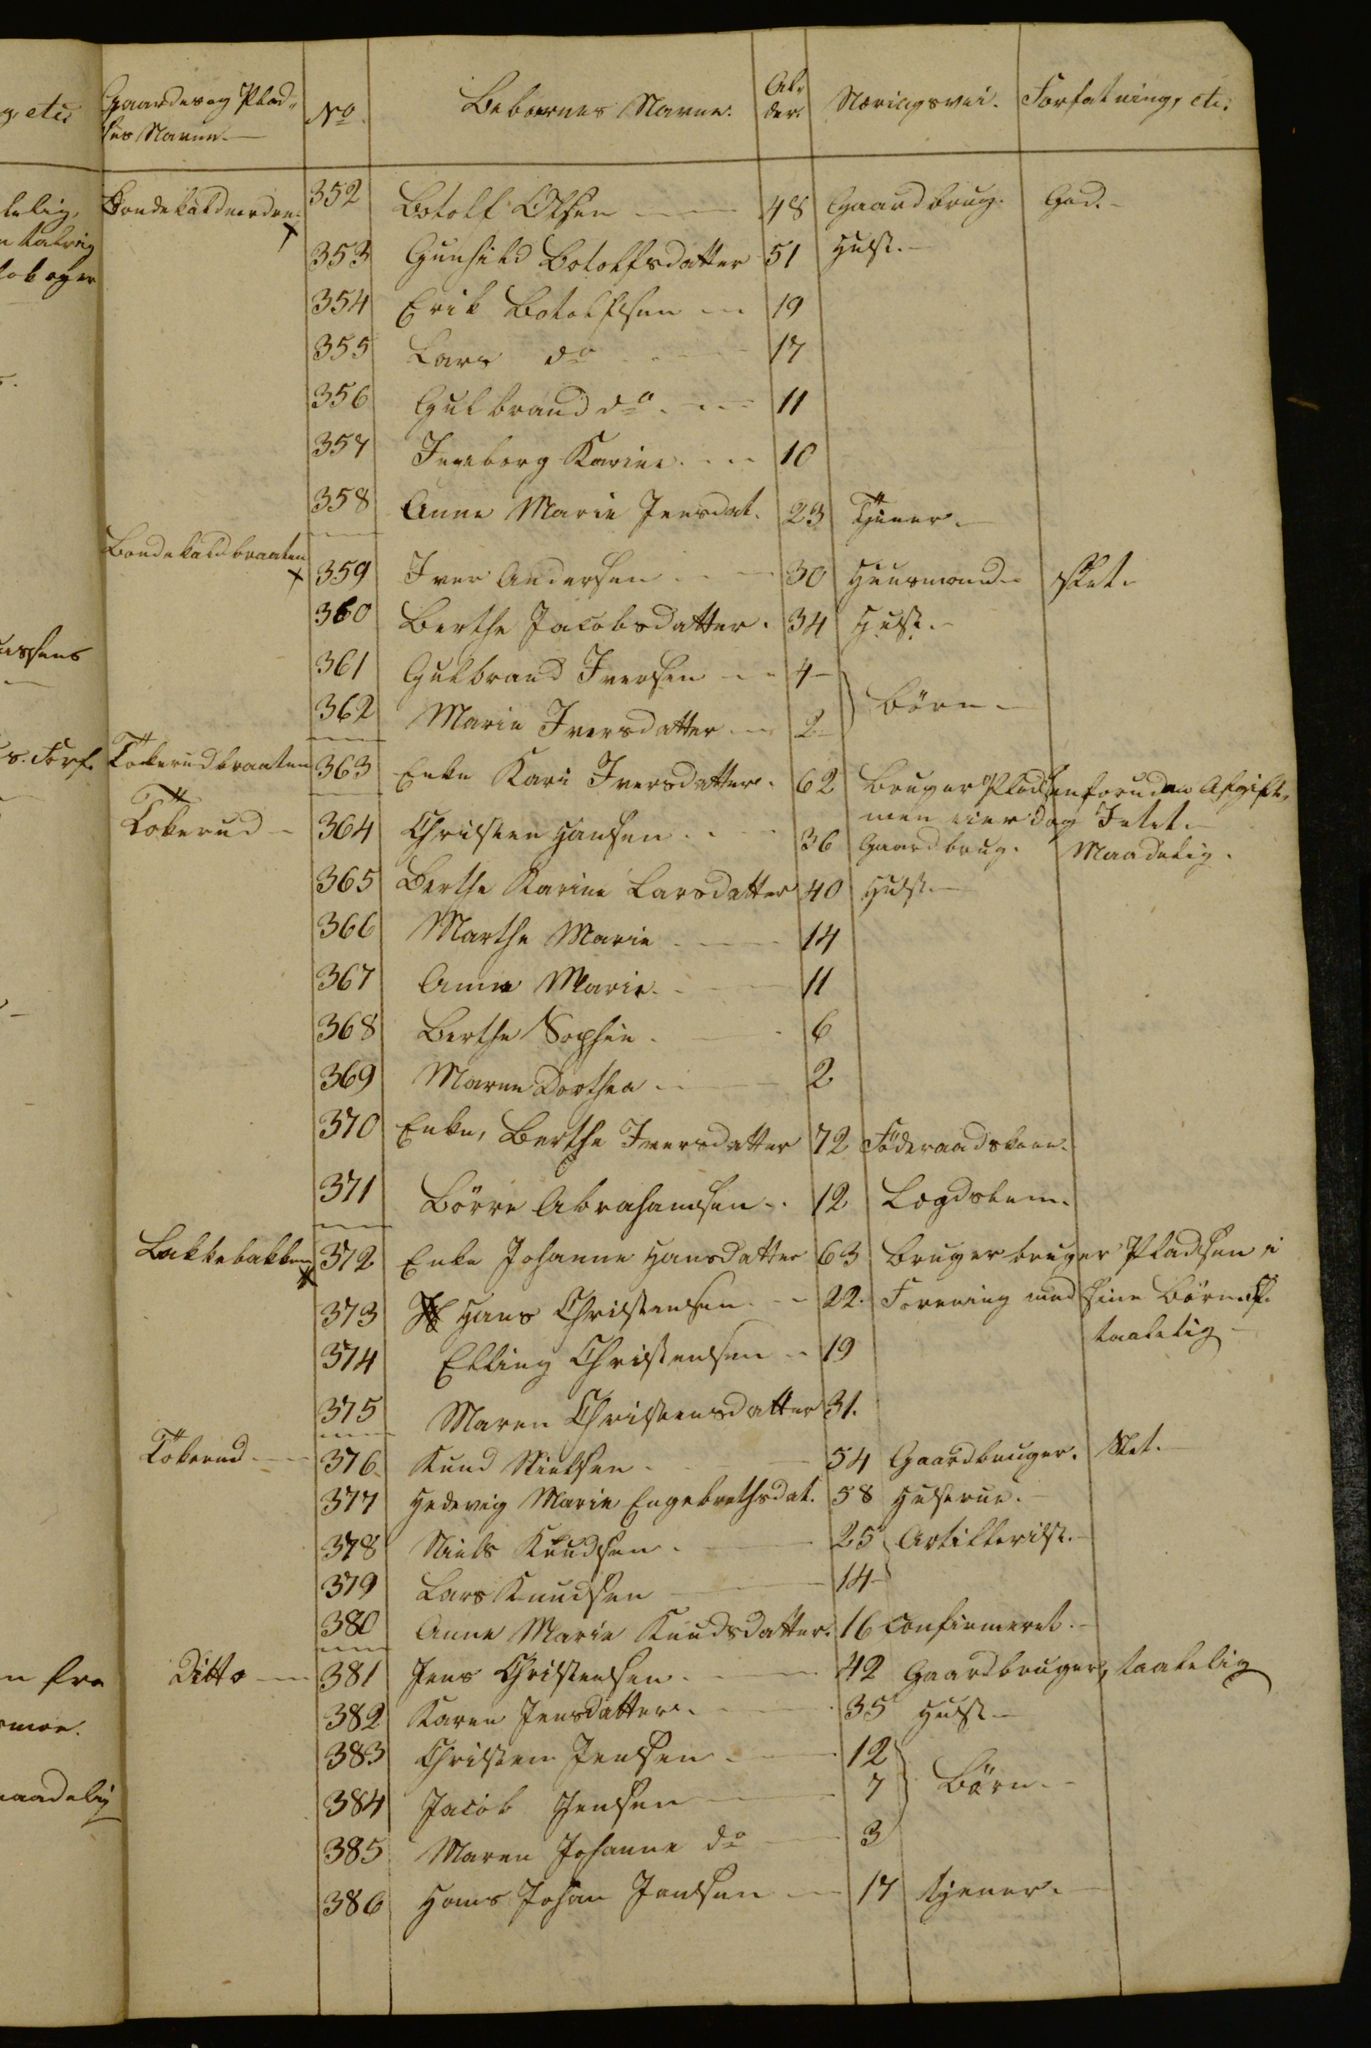 Gaardes og Plad-
ses Navne.
No.
Beboernes Navne.
Al-
der
Næringsvei.
Forfatning, etc:
352 Botolf Olsen 48 Gaardbrug. God.
353 Gunhild Botolfsdatter 51 Hust.
354 Erik Botolfsen 19
355 Lars do 17
356 Gulbrand do 11
357 Ingeborg Karine 10
358 Anne Marie Jensdat. 23 Tjener.
Bondekaldbraaten
359 Iver Andersen 30 Huusmand slet.
360 Berthe Jacobsdatter. 34 Hust.
361 Gulbrand Iversen 4
Börn
362 Marie Iversdatter 2
Tokerudbraaten 363 Enke Kari Iversdatter. 62 Bruger Pladsen foruden Afgift,
men eier dog Intet.
Tokerud 364 Christen Hansen 36 Gaardbrug. Maadelig.
365 Berthe Karine Larsdatter 40 Hust.
366 Marthe Marie 14
367 Anne Marie 11
368 Berthe Sophie 6
369 Maren Dorthea 2
370 Enke, Berthe Iversdatter 72 Föderaadskone.
371 Börre Abrahamsen 12 Lægdslem.
Bakkebakken 372 Enke Johanne Hansdatter 63 Bruger bruger Pladsen i
373 Hans Christensen 22. Forening med sine Börn
taalelig
374 Elling Christensen 19
375 Maren Christensdatter 31.
Tokerud 376 Knud Nielsen 54 Gaardbruger. Slet.
377 Hedevig Marie Engebrethsdat. 58 Hustrue.
378 Niels Knudsen 25 Artillerist.
379 Lars Knudsen 14
380 Anne Marie Knudsdatter. 16 Confirmeret.
Ditto 381 Jens Christensen 42 Gaardbruger, taalelig
382 Karen Jensdatter 35 Hust
383 Christen Jensen 12
384 Jacob Jensen 7 Börn
385 Maren Johanne do 3
386 Hans Johan Jensen 17 tjener.